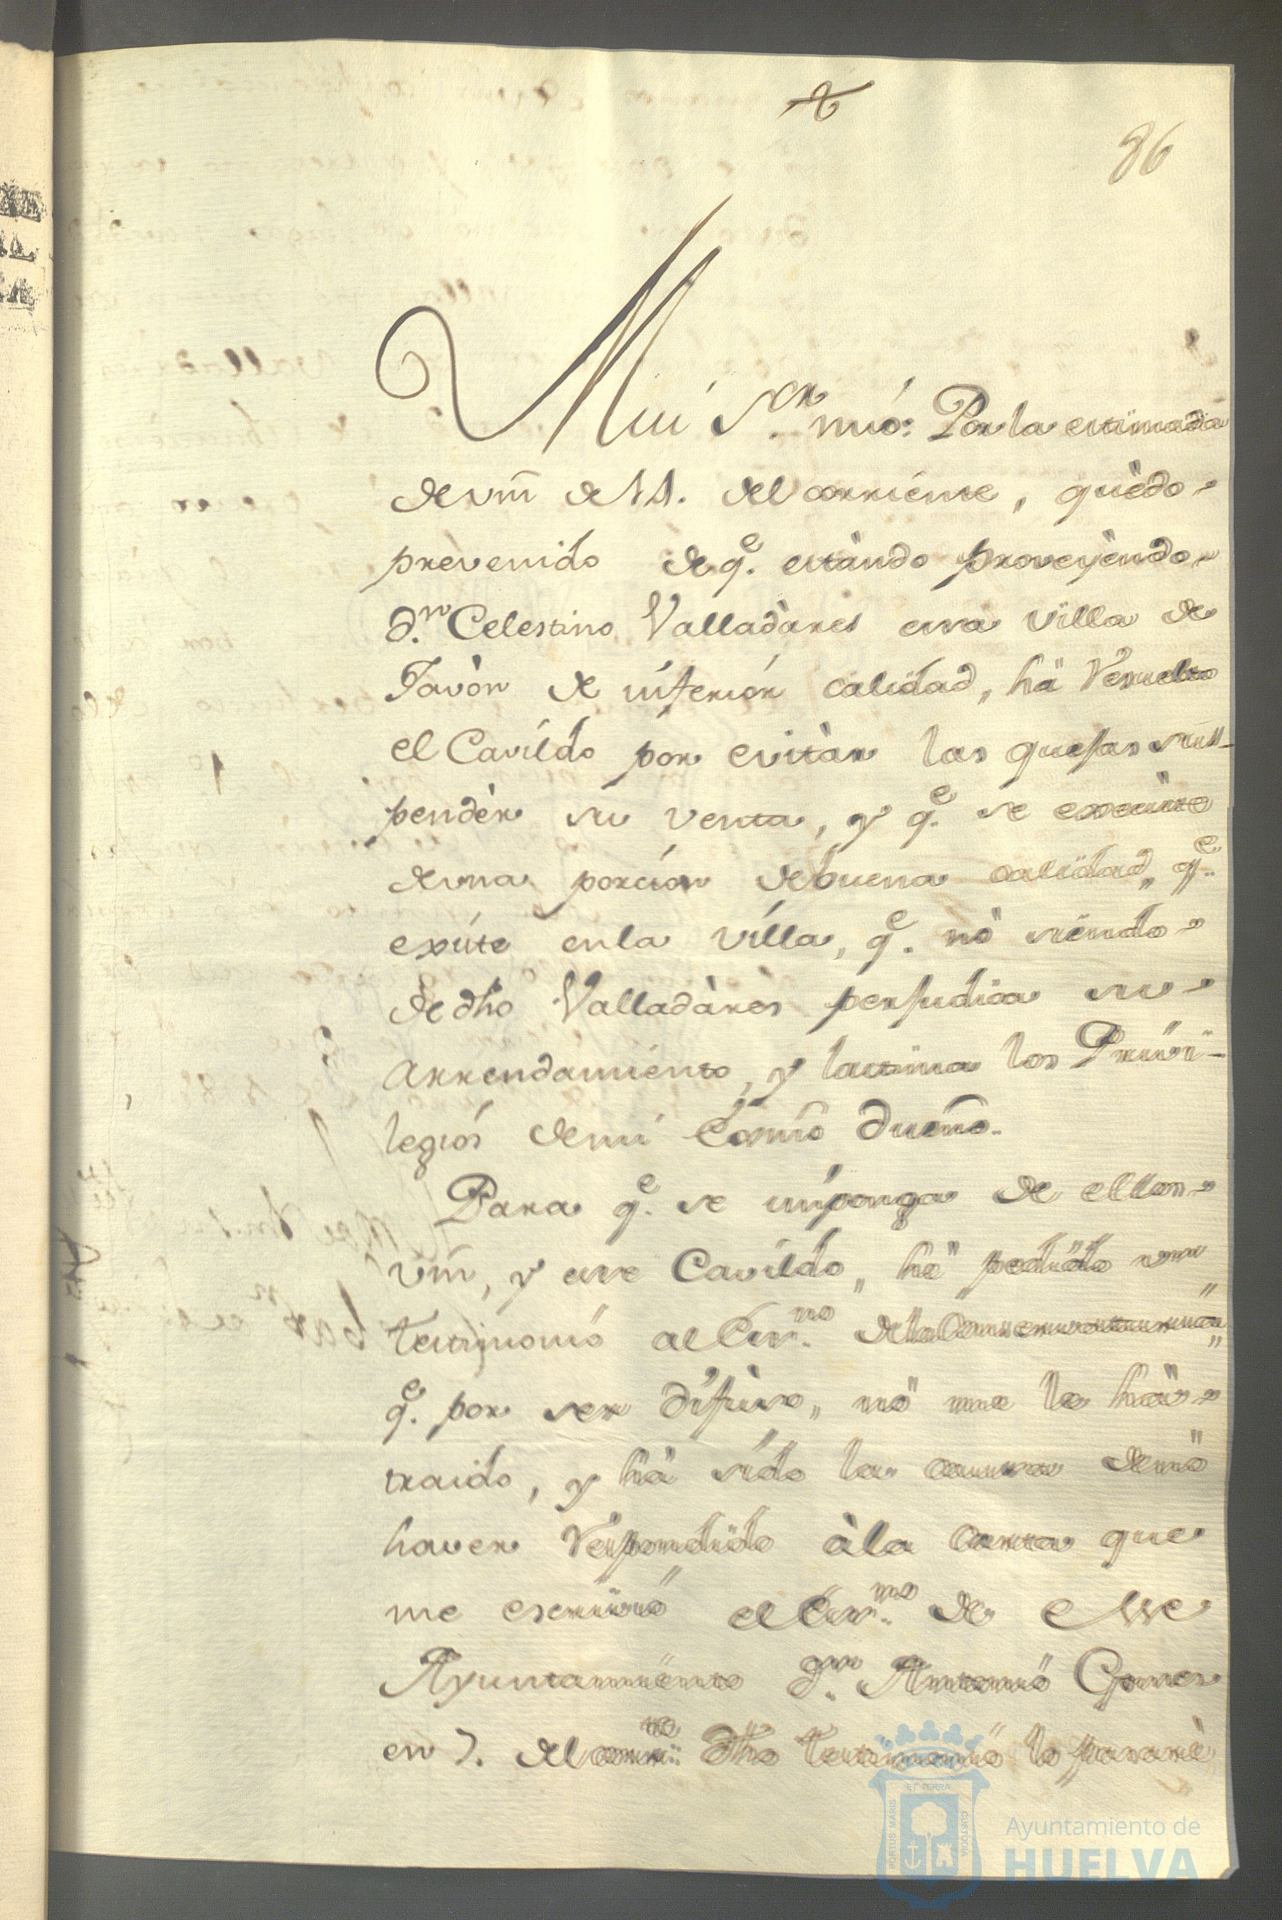 86
Mui S.or mio: Por la estimada
de vm de 11. del corriente, quedo
prevenido de q.e estando proveyendo
d.n Celestino Valladares esa Villa de
Javon de inferior calidad, ha resuelto
el Cavildo por evitar las quejas sus-
pender su venta, y q.e se execute
de una porcion de buena calidad, q.e
existe en la Villa, q.e no siendo
de dho Valladares perjudica su
arrendamiento, y lastima los Privi-
legios de mi Exmo Dueño.
Para q.e se imponga de ellos
vm, y ese Cavildo, he pedido un
testimonio al Es.no de la Conservaturia
q.e por ser difuso, no me lo ha
traido, y ha sido la causa de no
haver respondido à la carta que
me escrivió el Es.no de esse
Ayuntamiento d.n Antonio Gomes
en 7. del corr.te dho testimonio lo pasaré
PORTUS MARIS ET TERRÆ CUSTODIA
Ayuntamiento de
HUELVA